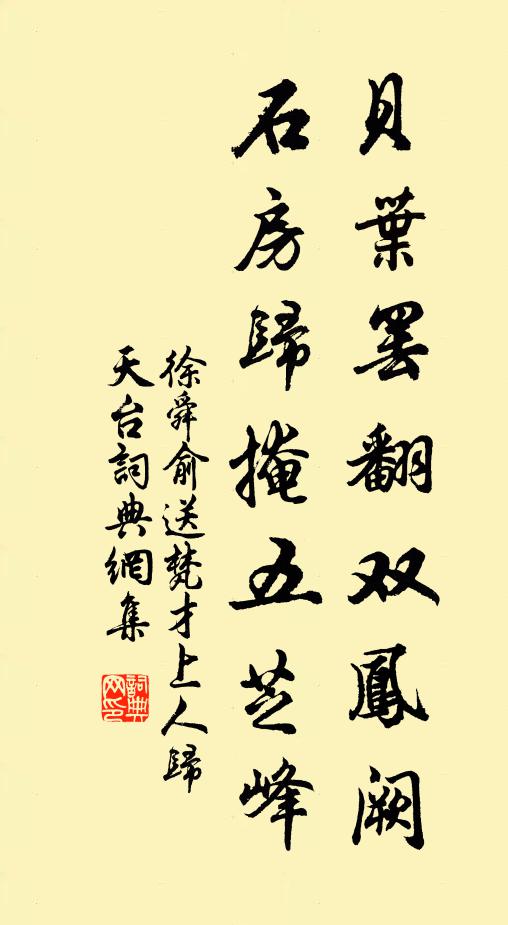 貝葉罢翻双鳳阙
石房歸掩五芝峰
徐舜俞送梵才上人歸
天台詞典網集
詞典
网印